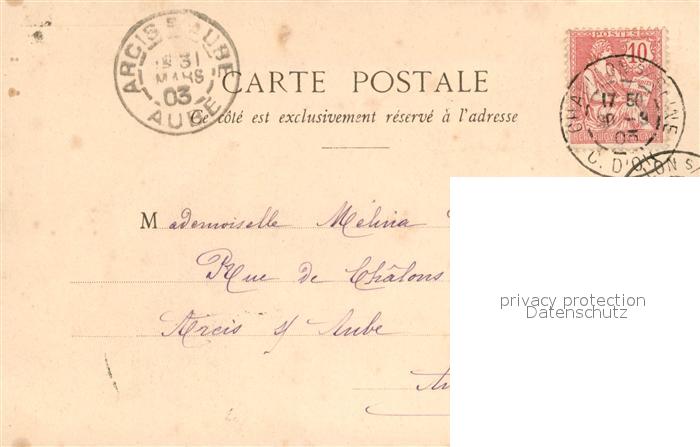 ARCIS S. AUBE
31
MARS
03
AUBE
POSTES
10
CARTE POSTALE
Ce côté est exclusivement réservé à l'adresse
17 50
03
C. D'OR
ON S/
Mademoiselle Mélina
Rue de Châlons
Arcis s/ Aube
privacy protection
Datenschutz